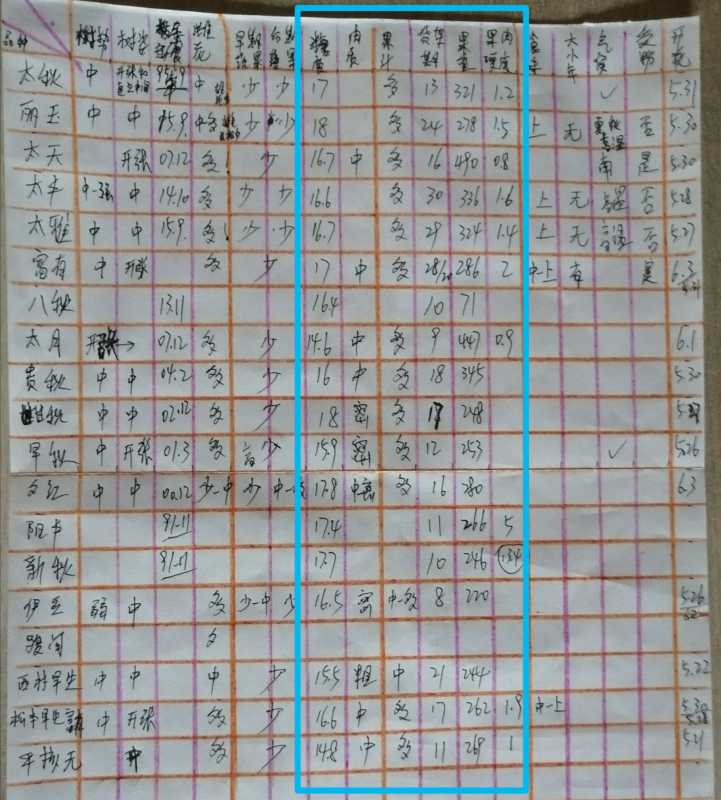 品种 树势 树姿 雄花 早期落果 后期落果 糖度 肉质 果汁 货架期 果重 果肉硬度 大小年 气候 开花
太秋 中 开张和直立中间 95.9 中 少 少 17 多 13 321 1.2 ✓ 5.31
丽玉 中 中 15.9 中多 少 少 18 多 24 278 1.5 上 无 否 5.30
太天 开张 07.12 多! 少 16.7 中 多 16 490 0.8 南 是 5.30
太丰 中-强 中 14.10 多 少 少 16.6 多 30 336 1.6 上 无 否 5.28
太雅 中 中 15.9 多! 少 少 16.7 多 29 324 1.4 上 无 否 5.27
富有 中 开张 多 少 17 中 多 28/20 286 2 中上 有 6.3
八秋 13.11 16.4 10 71
太月 开张→ 07.12 多 少 14.6 中 多 9 447 0.9 6.1
贵秋 中 中 04.2 多 少 16 中 多 18 345 5.30
甘秋 中 中 02.12 多 少 18 密 多 17 248
早秋 中 开张 01.3 多 高 少 15.9 密 多 12 253 ✓ 5.26
夕红 中 中 00.12 少-中 少 17.8 中密 多 16 280 6.3
阳丰 91.11 17.4 11 266 5
新秋 91.11 17.7 10 246 1.34
伊豆 弱 中 多 少-中 少 16.5 密 中-多 8 220 5.26
骏河 多
西村早生 中 中 中 少 15.5 粗 中 21 244 5.22
松本早生 中 开张 多 少 16.6 中 多 17 262 1.9 中-上 5.30
平核无 中 多 少 14.8 中 多 11 269 1 5.21